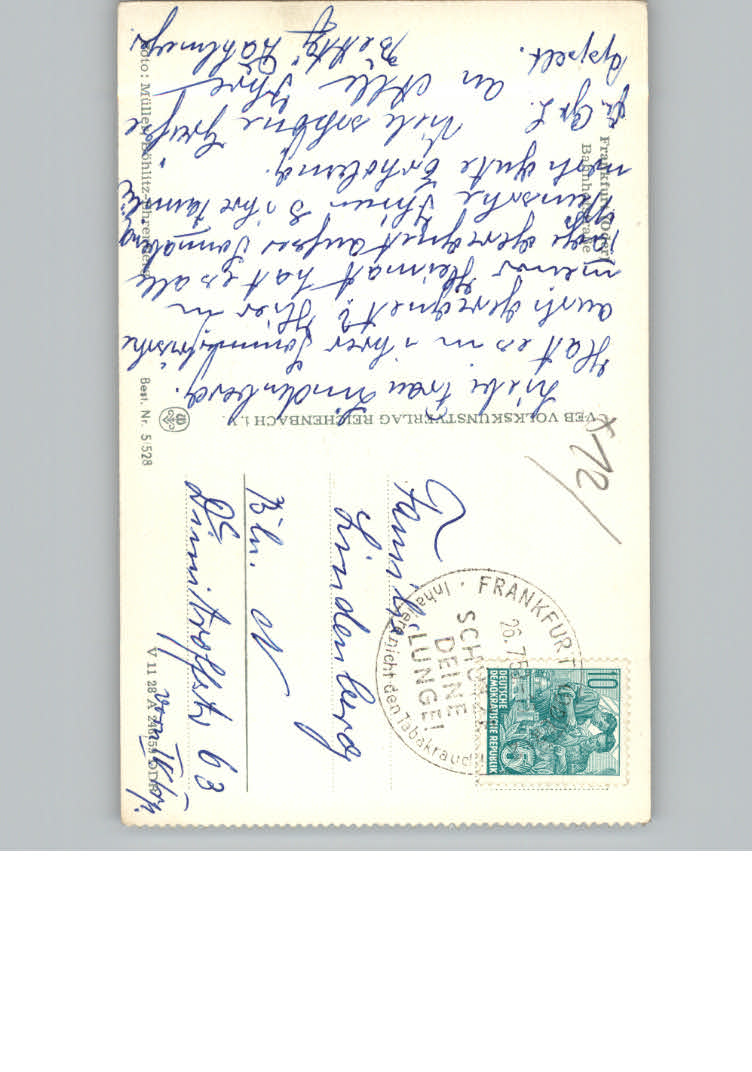 Frankfurt (Oder)
Bahnhofstraße
Liebe Frau Lindenberg.
Hat es in ihrer Sommerfrische
auch geregnet? Hier in
meiner Heimat hat es alle
Tage geregnet außer Sonnabend
Wünsche Ihnen & ihre Familie
noch gute Erholung.
Viele schöne Grüße
an Alle Ihre
Betty
Foto: Müller, Böhlitz-Ehrenberg
VEB VOLKSKUNSTVERLAG REICHENBACH i. V.
Best. Nr. 5/528
x 12
FRANKFURT
26.7.5
SCHÜTZE
DEINE
LUNGE!
Inhaliere nicht den Tabakrauch
10
DEUTSCHE
DEMOKRATISCHE REPUBLIK
Familie
Lindenberg
Bln. N
Dimitroffstr 63
vorn IV
V 11 28 A
DDR